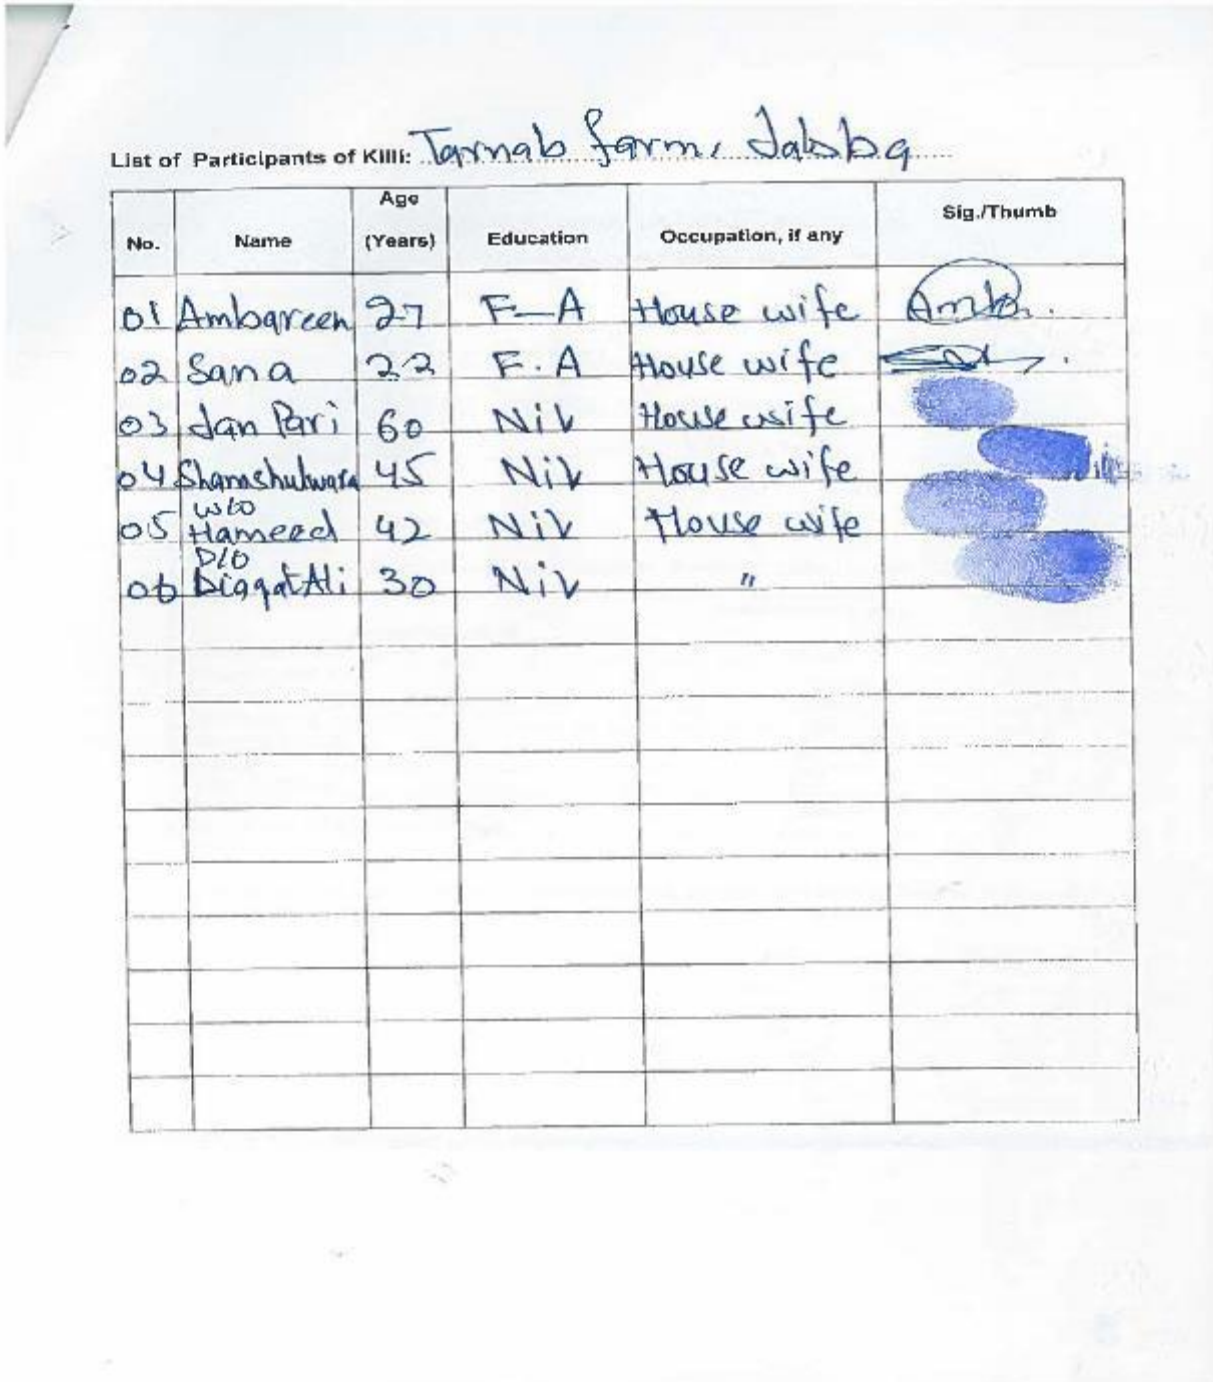 List of Participants of Killi: Tarnab farm, Jabba
No. Name Age (Years) Education Occupation, if any Sig./Thumb
01 Ambareen 27 F-A House wife Amb.
02 Sana 22 F.A House wife
03 Jan Pari 60 Nil House wife
04 Shamshulwara 45 Nil House wife
05 w/o Hameed 42 Nil House wife
06 D/o Diaqat Ali 30 Nil "